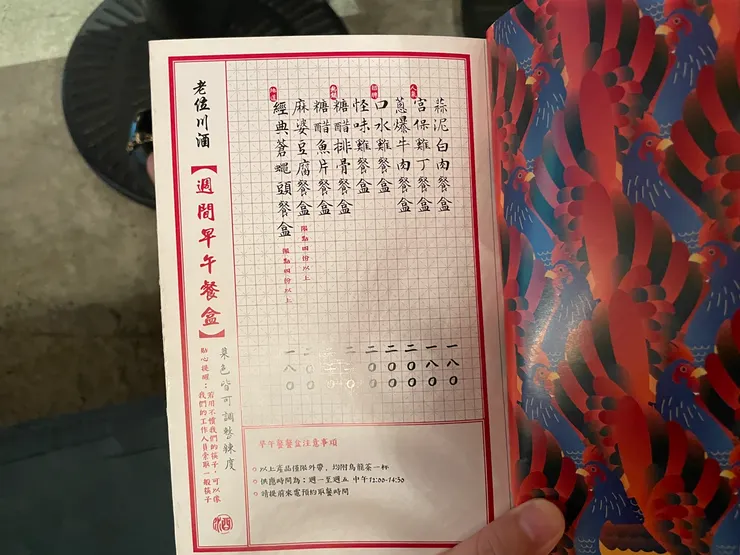 蒜泥白肉餐盒 一八〇
人氣
宮保雞丁餐盒 一八〇
蔥爆牛肉餐盒 二〇〇
招牌
口水雞餐盒 二〇〇
怪味雞餐盒 二〇〇
糖醋排骨餐盒
糖醋魚片餐盒
麻婆豆腐餐盒 限點四份以上 二〇〇
經典蒼蠅頭餐盒 限點四份以上 一八〇
老位川酒【週間早午餐盒】
菜色皆可調整辣度
貼心提醒：若用不慣我們的筷子，可以像
我們的工作人員索取一般筷子
早午餐餐盒注意事項
以上產品僅限外帶、均附烏龍茶一杯
供應時間為：週一至週五 中午12:00-14:30
請提前來電預約取餐時間